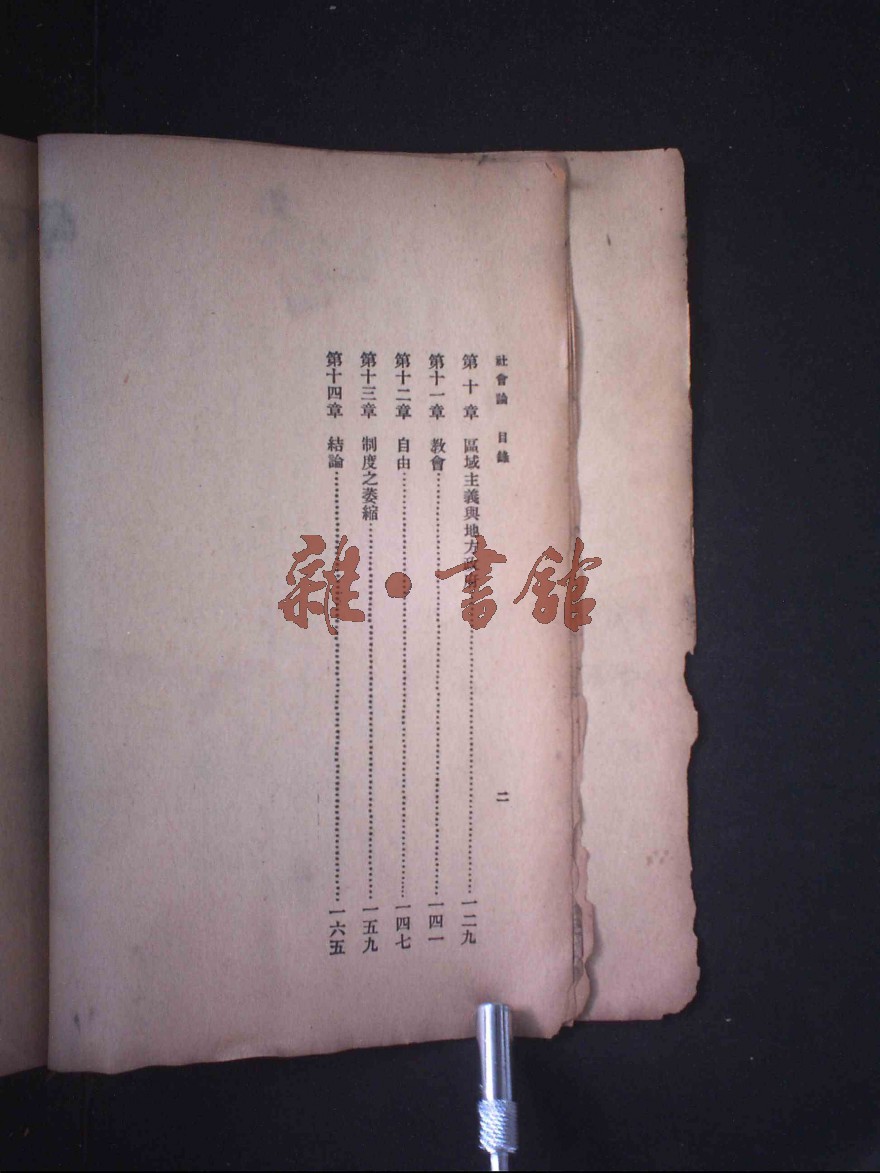 社會論 目錄 二
第十章 區域主義與地方政府……一二九
第十一章 教會……一四一
第十二章 自由……一四七
第十三章 制度之萎縮……一五九
第十四章 結論……一六五
雜·書館